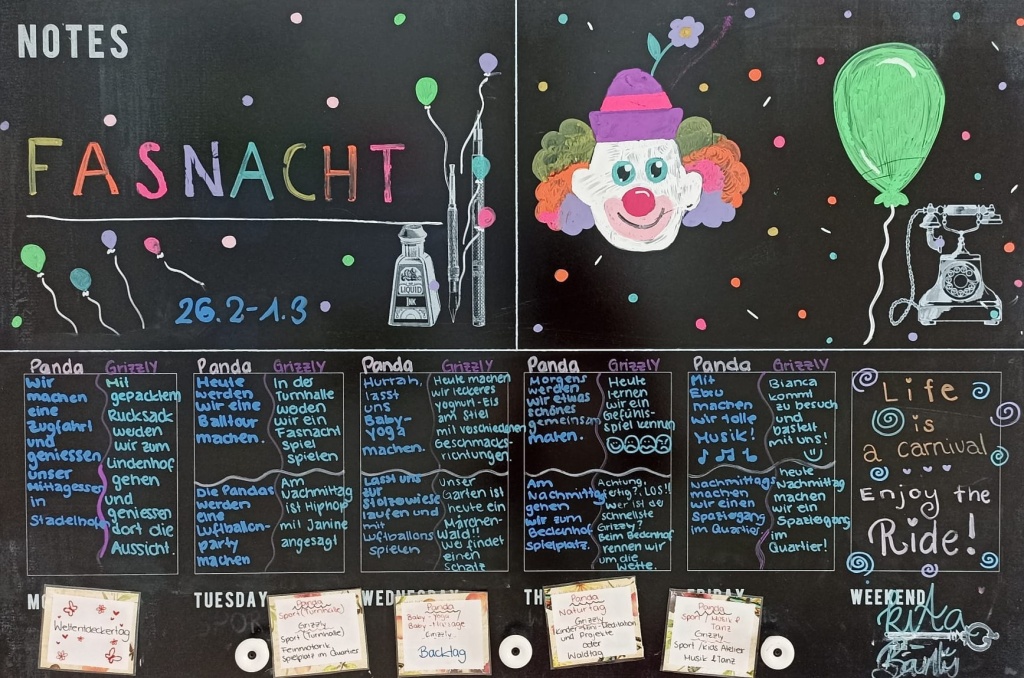 NOTES
FASNACHT
26.2-1.3
LIQUID
INK
Panda
Wir
machen
eine
Zugfahrt
und
geniessen
unser
Mittagessen
in
Stadelhofen
Grizzly
Mit
gepacktem
Rucksack
werden
wir zum
Lindenhof
gehen
und
geniessen
dort die
Aussicht.
Panda
Heute
werden
wir eine
Balltour
machen.
Die Pandas
werden
eine
Luftballon-
party
machen
Grizzly
In der
Turnhalle
weden
wir ein
Fasnacht
Spiel
spielen
Am
Nachmittag
ist Hiphop
mit Janine
angesagt
Panda
Hurrah,
lasst
uns
Baby-
Yoga
machen.
Lasst uns
zur
Stolzewiese
laufen und
mit
Luftballons
spielen
Grizzly
Heute machen
wir leckeres
Yoghurt-Eis
am Stiel
mit verschiedenen
Geschmacks-
richtungen.
Unser
Garten ist
heute ein
Märchen-
Wald!!
Wo findet
einen
Schatz
Panda
Morgens
werden
wir etwas
schönes
gemeinsam
malen.
Am
Nachmittag
gehen
wir zum
Beckenhof
Spielplatz.
Grizzly
Heute
lernen
wir ein
Gefühls-
spiel kennen
Achtung,
fertig?, LOS!!
Wer ist der
schnellste
Grizzly?
Beim Beckenhof
rennen wir
um die
Wette.
Panda
Mit
Ebru
machen
wir tolle
Musik!
Nachmittags
machen
wir einen
Spaziergang
im Quartier
Grizzly
Bianca
kommt
zu besuch
und
bastelt
mit uns!
heute
Nachmittag
machen
wir einen
Spaziegang
im
Quartier!
Life
is
a carnival
Enjoy the
Ride!
TUESDAY
WEDNESDAY
WEEKEND
Weltentdeckertag
Panda
Sport (Turnhalle)
Grizzly
Sport (Turnhalle)
Feinmotorik
Spielplatz im Quartier
Panda
Baby-Yoga/
Baby-Massage
Grizzly
Backtag
Panda
Naturtag
Grizzly
und Projekte
oder
Waldtag
Panda
Sport / Musik &
Tanz
Grizzly
Sport / Kids Atelier
Musik & Tanz
Rita